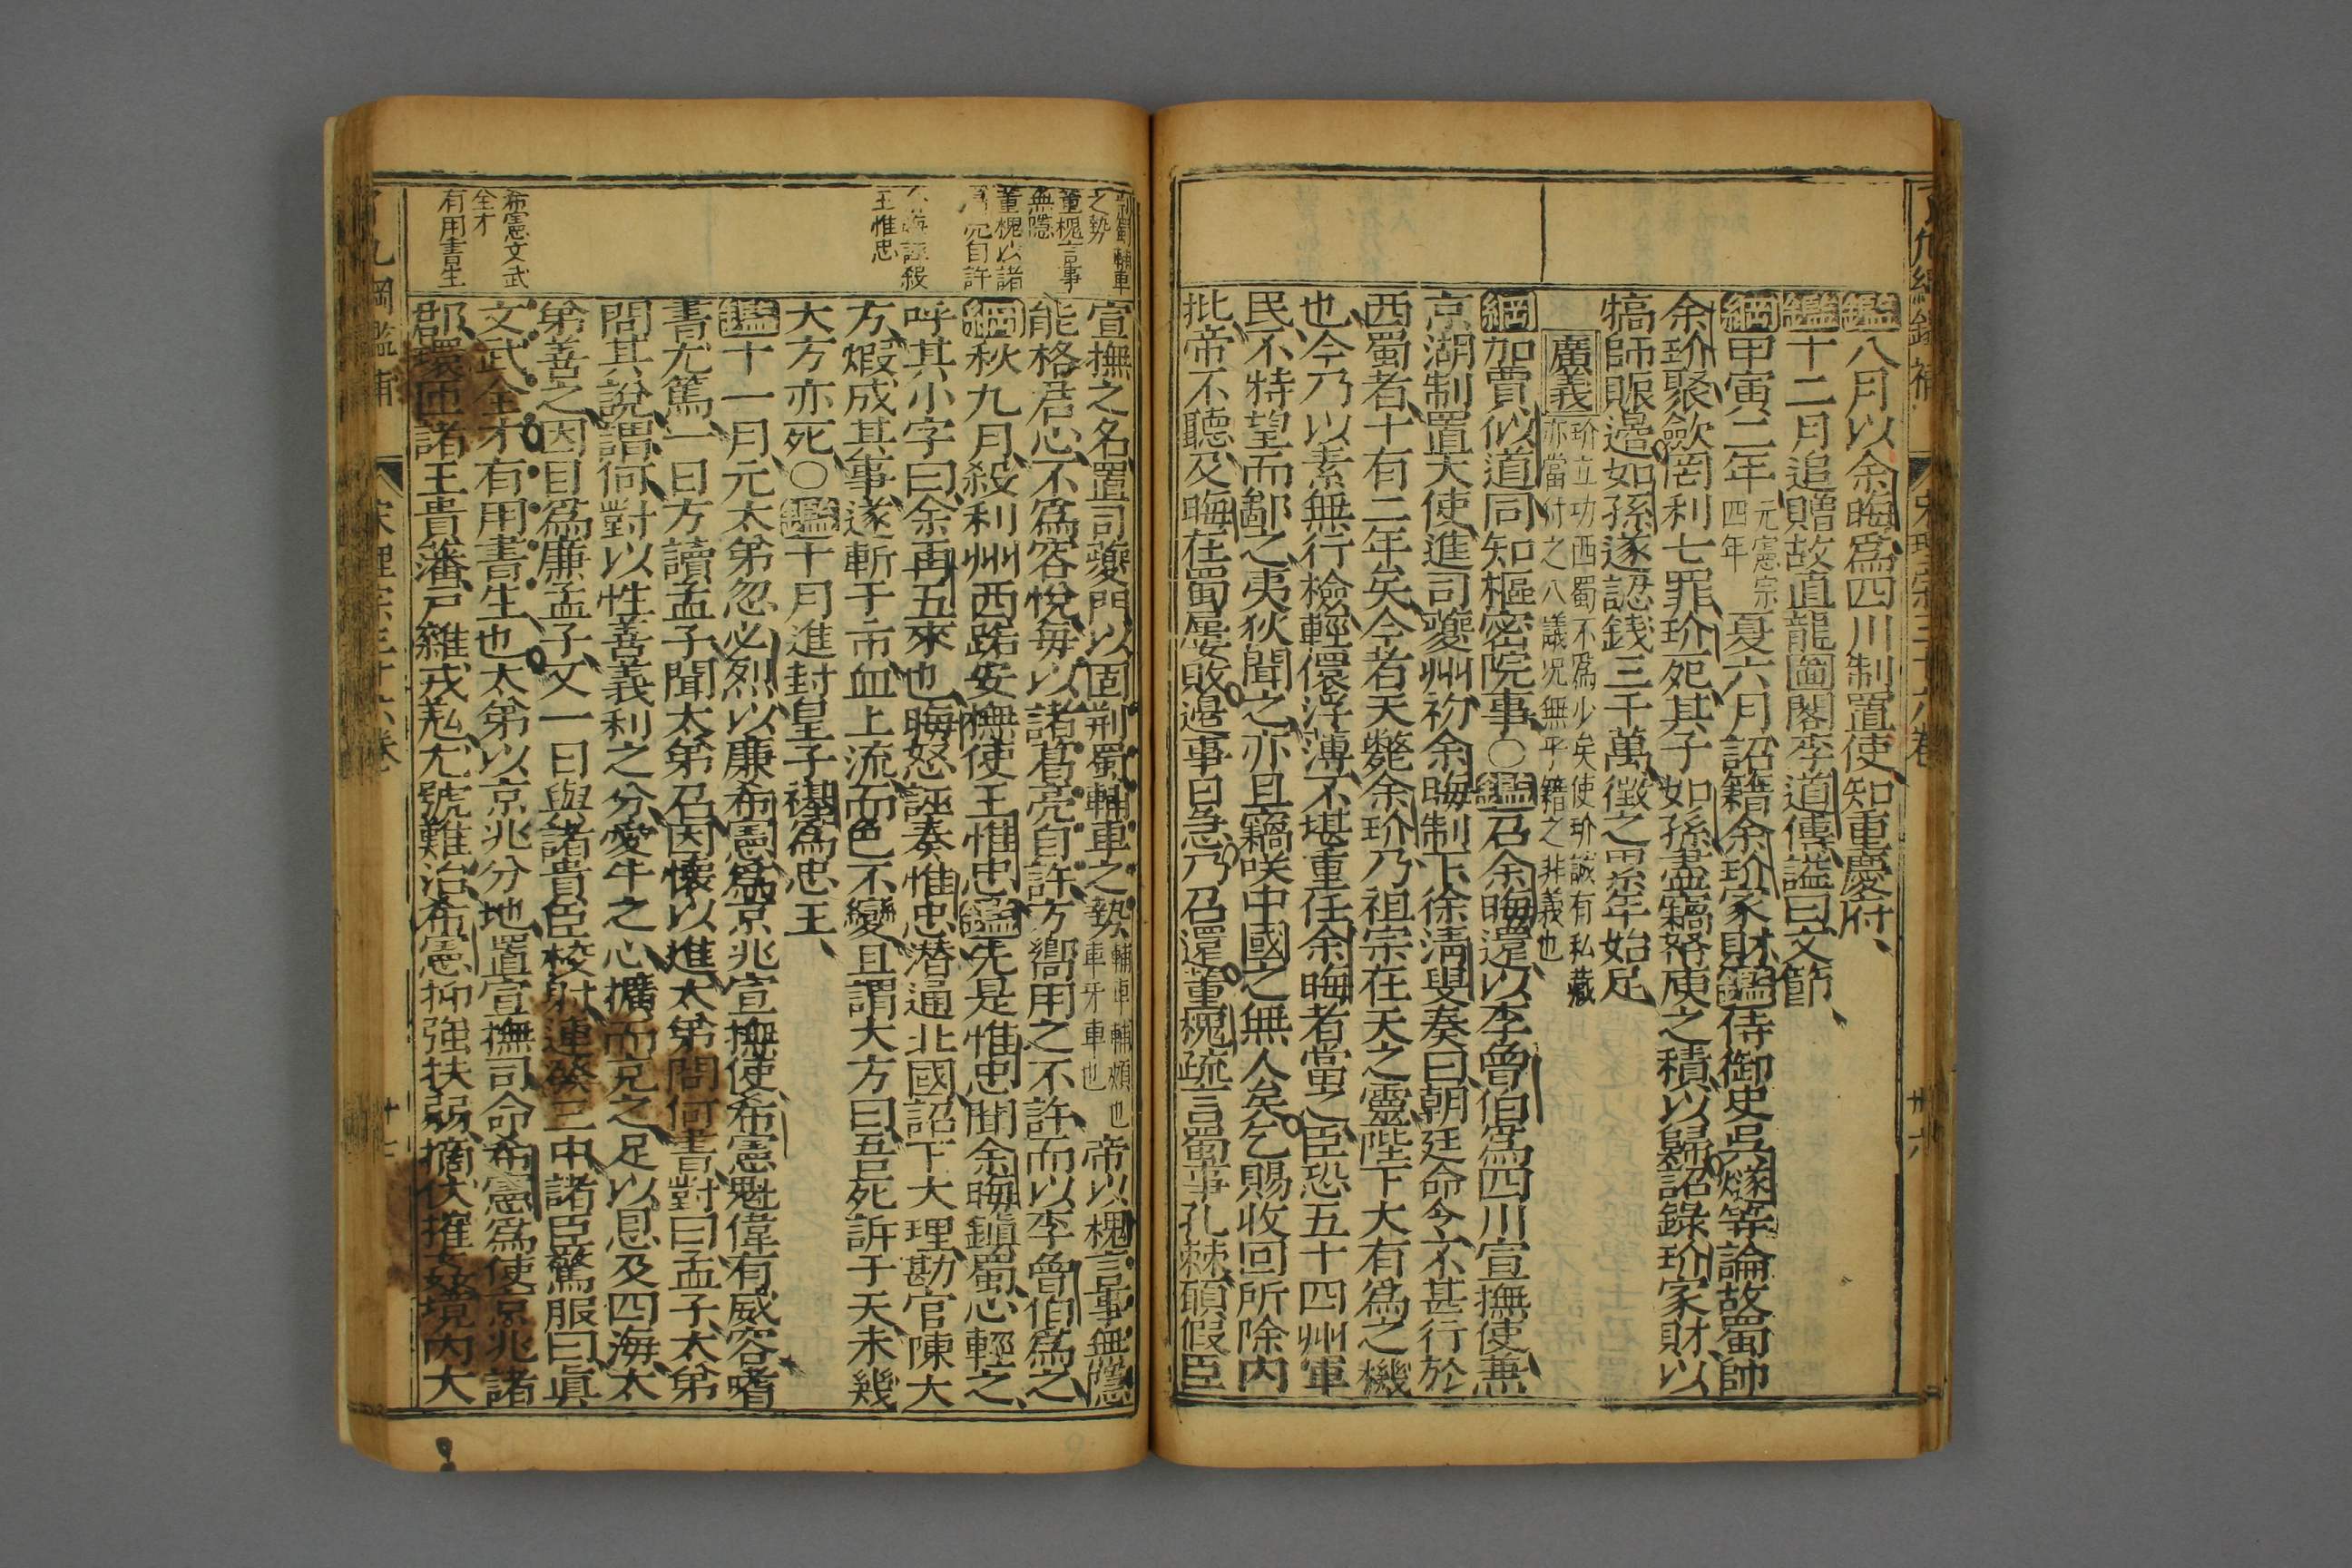 鑑八月以余晦爲四川制置使知重慶府
鑑十二月追贈故直龍圖閣李道傳謚曰文節
綱甲寅二年元憲宗四年夏六月詔籍余玠家財鑑侍御史吳燧等論故蜀帥
余玠聚歛罔利七罪玠死其子如孫盡竊帑庾之積以歸詔錄玠家財以
犒師賑邊如孫遂認錢三千萬徵之累年始足
廣義玠立功西蜀不爲少矣使玠誠有私藏
亦當付之八議况無乎籍之非義也
綱加賈似道同知樞密院事○鑑召余晦還以李曾伯爲四川宣撫使兼
京湖制置大使進司夔州初余晦制下徐淸叟奏曰朝廷命令不甚行於
西蜀者十有二年矣今者天斃余玠乃祖宗在天之靈陛下大有爲之機
也今乃以素無行檢輕儇浮薄不堪重任余晦者當之臣恐五十四州軍
民不特望而鄙之夷狄聞之亦且竊咲中國之無人矣乞賜收回所除内
批帝不聽及晦在蜀屢敗邊事日急乃召還董槐疏言蜀事孔棘願假臣
荊蜀輔車
之勢
董槐言事
無隱
董槐以諸
葛亮自許
余晦誣殺
王惟忠
希憲文武
全才
有用書生
宣撫之名置司夔門以固荊蜀輔車之勢輔車輔頰也車牙車也帝以槐言事無隱
能格君心不爲容悅每以諸葛亮自許方嚮用之不許而以李曾伯爲之
綱秋九月殺利州西路安撫使王惟忠鑑先是惟忠聞余晦鎭蜀心輕之
呼其小字曰余再五來也晦怒誣奏惟忠潜通北國詔下大理勘官陳大
方煆成其事遂斬于市血上流而色不變且謂大方曰吾死訴于天未幾
大方亦死○鑑十月進封皇子禥爲忠王
鑑十一月元太弟忽必烈以廉希憲爲京兆宣撫使希憲魁偉有威容嗜
書尤篤一日方讀孟子聞太弟召因懷以進太弟問何書對曰孟子太弟
問其說謂何對以性善義利之分愛牛之心擴而充之足以恩及四海太
弟善之因目爲廉孟子又一日與諸貴臣校射連發三中諸臣驚服曰眞
文武全才有用書生也太弟以京兆分地置宣撫司命希憲爲使京兆諸
郡環匝諸王貴藩戸雜戎羌尤號難治希憲抑強扶弱摘伏摧奸境内大